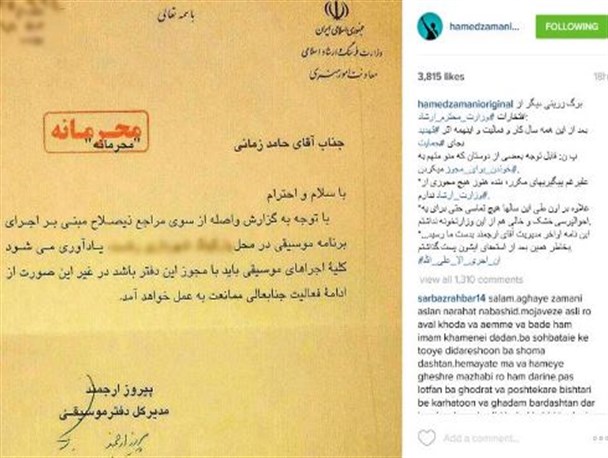 باسمه تعالی
جمهوری اسلامی ایران
وزارت فرهنگ و ارشاد اسلامی
معاونت امور هنری
محرمانه
جناب آقای حامد زمانی
"محرمانه"
با سلام و احترام
با توجه به گزارش واصله از سوی مراجع ذیصلاح مبنی بر اجرای
برنامه موسیقی در محل یادآوری می شود
کلیهٔ اجراهای موسیقی باید با مجوز این دفتر باشد در غیر این صورت از
ادامهٔ فعالیت جنابعالی ممانعت به عمل خواهد آمد.
پیروز ارجمند
مدیرکل دفتر موسیقی
hamedzamani...
FOLLOWING
3,815 likes
18h
hamedzamanioriginal برگ زرینی دیگر از
افتخارات #وزارت_محترم_ارشاد:
بعد از این همه سال کار و فعالیت و اینهمه اثر #تهدید
بجای #حمایت
پ ن: قابل توجه بعضی از دوستان که منو متهم به
#خوندن_برای_مجوز میکردن
علیرغم پیگیریهای مکرر، بنده هنوز هیچ مجوزی از
#وزارت_ارشاد ندارم.
علاوه بر اون طی این سالها هیچ تماسی حتی برای یه
احوالپرسی خشک و خالی هم از این وزارتخونه نداشتم.
*این نامه اواخر مدیریت آقای ارجمند بدست ما رسید..
بخاطر همین بعد از استعفای ایشون پست گذاشتم
#ان_اجری_الا_علی_الله
view all 1,310 comments
sarbazrahbar14 salam.aghaye zamani
aslan narahat nabashid.mojaveze asli ro
aval khoda va aemme va bade ham
imam khamenei dadan.ba sohbataie ke
tooye didareshoon ba shoma
dashtan.hemayate ma va hameye
gheshre mazhabi ro ham darine.pas
lotfan ba ghodrat va poshtekare bishtari
be karhatoon va ghadam bardashtan dar
Add a comment...